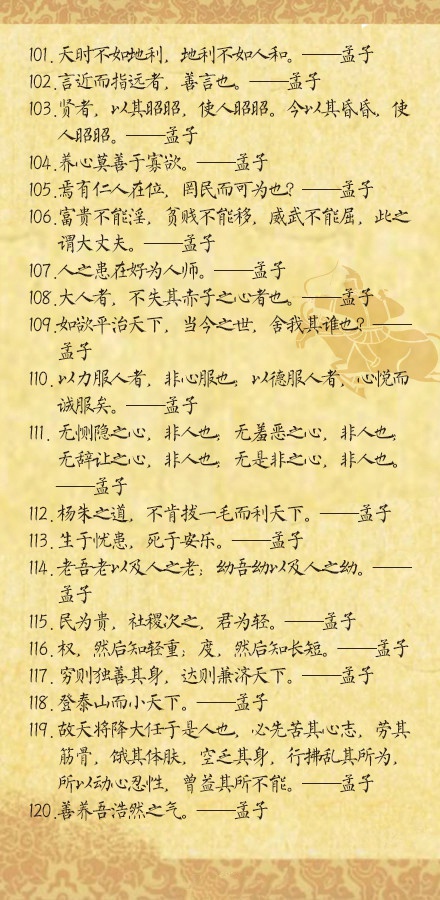 101.天时不如地利，地利不如人和。——孟子
102.言近而指远者，善言也。——孟子
103.贤者，以其昭昭，使人昭昭。今以其昏昏，使
人昭昭。——孟子
104.养心莫善于寡欲。——孟子
105.焉有仁人在位，罔民而可为也？——孟子
106.富贵不能淫，贫贱不能移，威武不能屈，此之
谓大丈夫。——孟子
107.人之患在好为人师。——孟子
108.大人者，不失其赤子之心者也。——孟子
109.如欲平治天下，当今之世，舍我其谁也？——
孟子
110.以力服人者，非心服也；以德服人者，心悦而
诚服矣。——孟子
111.无恻隐之心，非人也；无羞恶之心，非人也；
无辞让之心，非人也；无是非之心，非人也。
——孟子
112.杨朱之道，不肯拔一毛而利天下。——孟子
113.生于忧患，死于安乐。——孟子
114.老吾老以及人之老；幼吾幼以及人之幼。——
孟子
115.民为贵，社稷次之，君为轻。——孟子
116.权，然后知轻重；度，然后知长短。——孟子
117.穷则独善其身，达则兼济天下。——孟子
118.登泰山而小天下。——孟子
119.故天将降大任于是人也，必先苦其心志，劳其
筋骨，饿其体肤，空乏其身，行拂乱其所为，
所以动心忍性，曾益其所不能。——孟子
120.善养吾浩然之气。——孟子